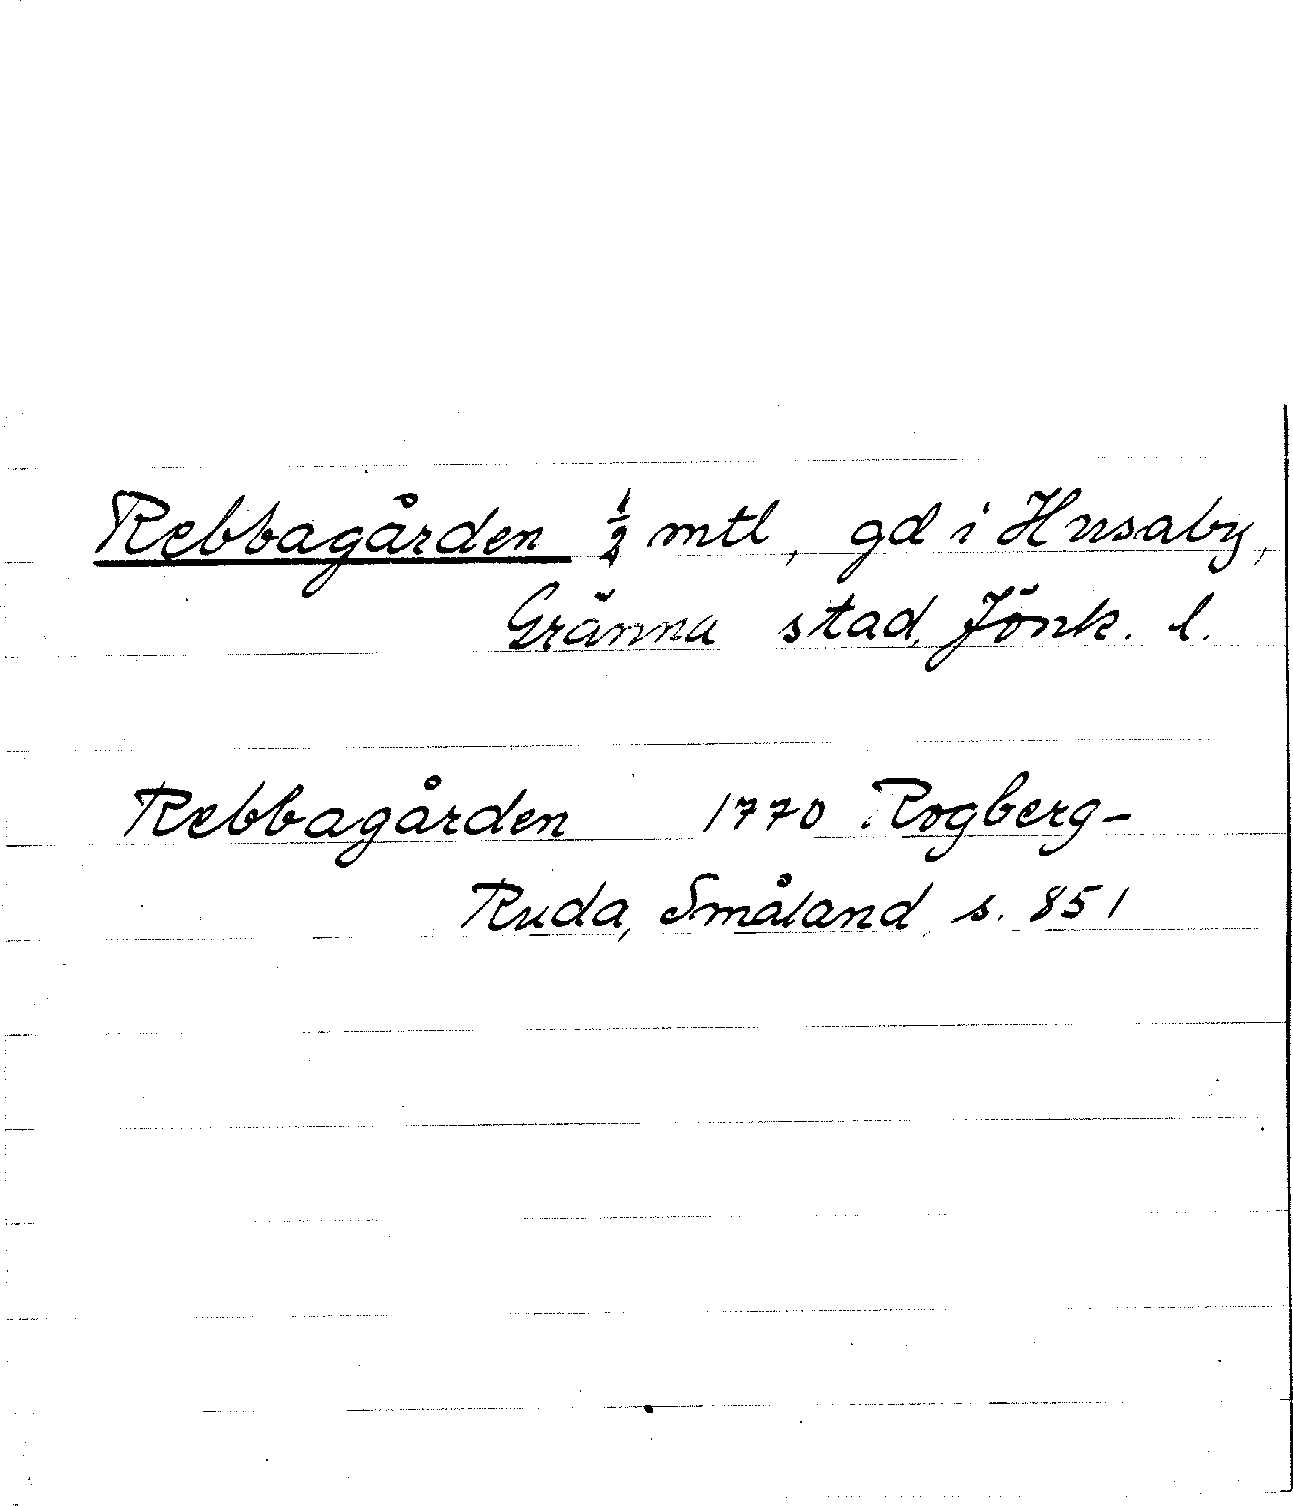 Rebbagården ½ mtl, gd i Husaby,
Gränna stad, Jönk. l.
Rebbagården 1770 Rogberg-
Ruda, Småland, s. 851